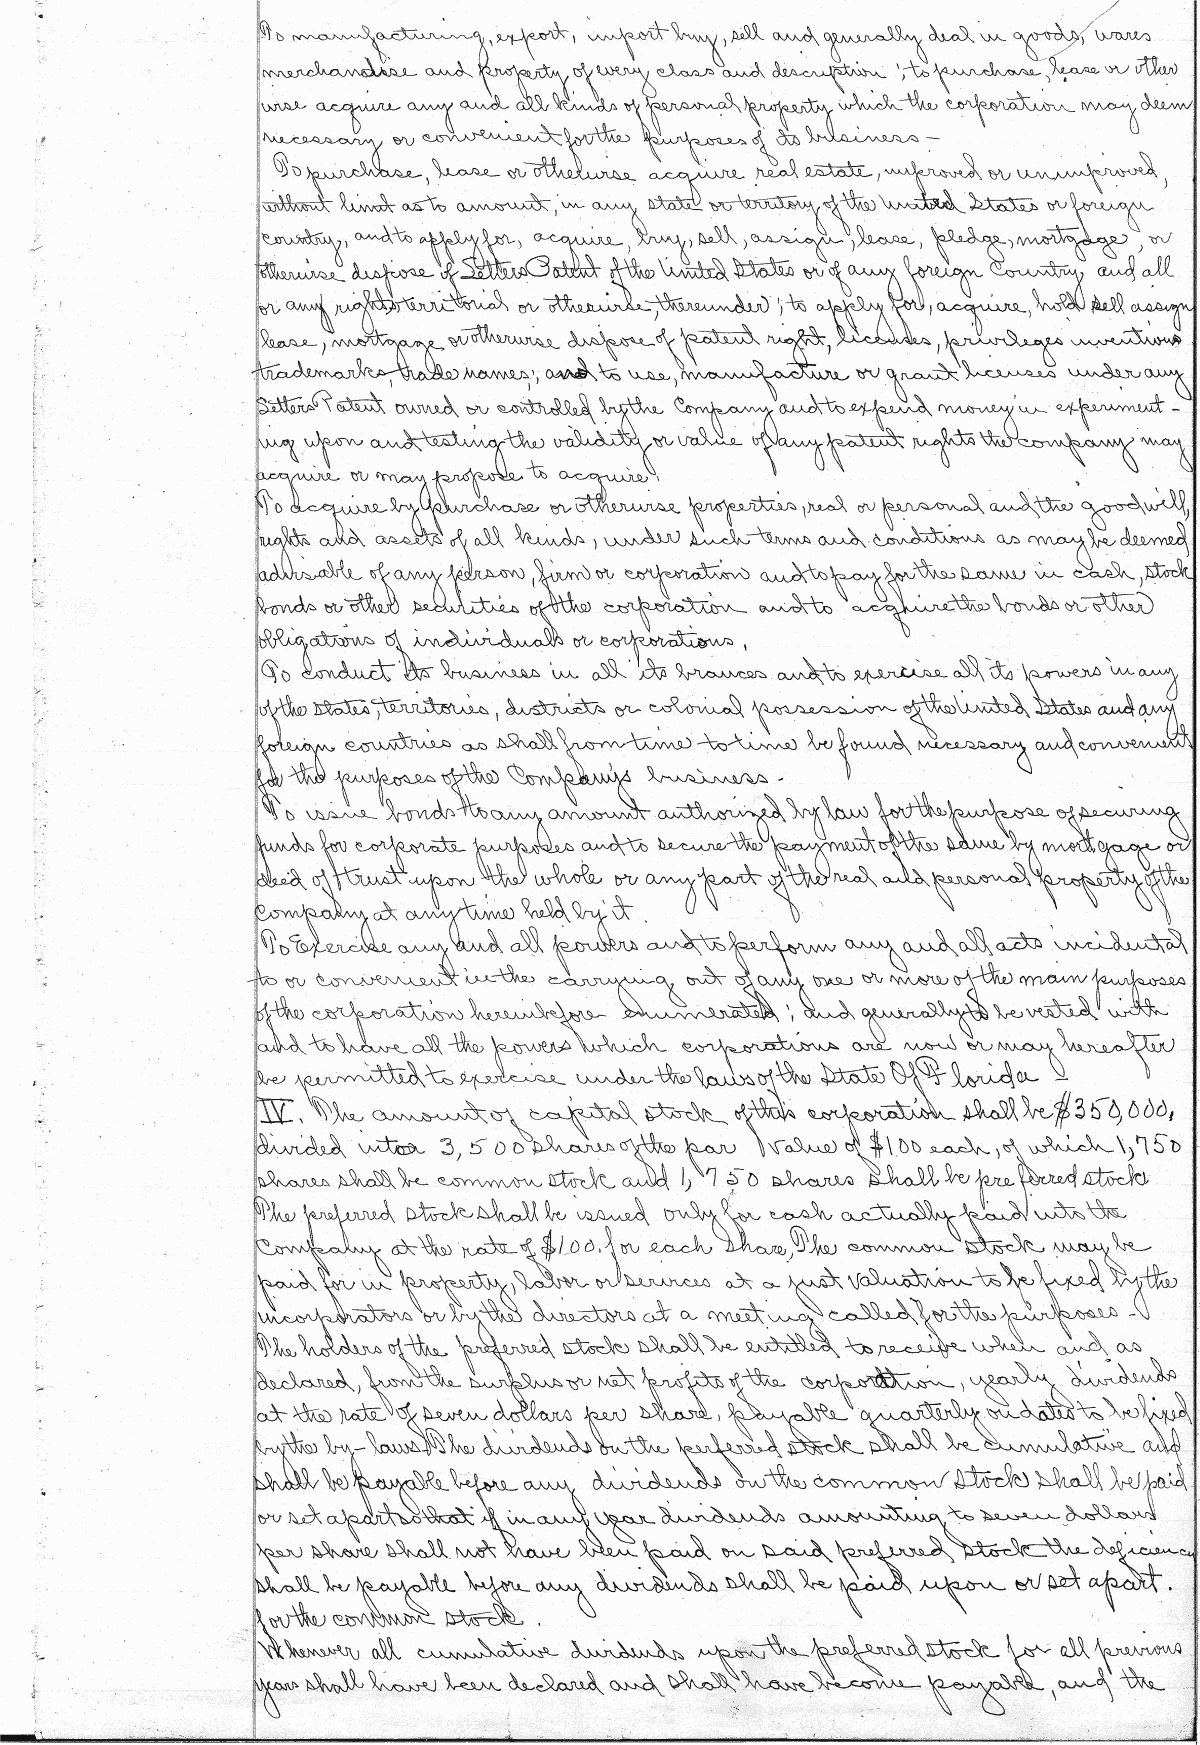 To manufacturing, export, import buy, sell and generally deal in goods, wares
merchandise and property of every class and description; to purchase, lease or other
wise acquire any and all kinds of personal property which the corporation may deem
necessary or convenient for the purposes of its business -
To purchase, lease or otherwise acquire real estate, improved or unimproved,
without limit as to amount, in any state or territory of the United States or foreign
country, and to apply for, acquire, buy, sell, assign, lease, pledge, mortgage, or
otherwise dispose of Letters Patent of the United States or of any foreign Country and all
or any rights territorial or otherwise, thereunder; to apply for, acquire, hold sell assign
lease, mortgage or otherwise dispose of patent right, licenses, privileges inventions
trademarks, trade names; and to use, manufacture or grant licenses under any
Letters Patent owned or controlled by the Company and to expend money in experiment-
ing upon and testing the validity or value of any patent rights the company may
acquire or may propose to acquire.
To acquire by purchase or otherwise properties, real or personal and the good will,
rights and assets of all kinds, under such terms and conditions as may be deemed
advisable of any person, firm or corporation and to pay for the same in cash, stock
bonds or other securities of the corporation and to acquire the bonds or other
obligations of individuals or corporations,
To conduct its business in all its brances and to exercise all its powers in any
of the states, territories, districts or colonial possession of the United States and any
foreign countries as shall from time to time be found necessary and convenient
for the purposes of the Company's business -
To issue bonds to any amount authorized by law for the purpose of securing
funds for corporate purposes and to secure the payment of the same by mortgage or
deed of trust upon the whole or any part of the real and personal property of the
Company at any time held by it.
To Exercise any and all powers and to perform any and all acts incidental
to or convenient in the carrying out of any one or more of the main purposes
of the corporation hereinbefore enumerated; and generally to be vested with
and to have all the powers which corporations are now or may hereafter
be permitted to exercise under the laws of the State Of Florida -
IV. The amount of capital stock of this corporation shall be $350,000,
divided into 3,500 shares of the par value of $100 each, of which 1,750
shares shall be common stock and 1,750 shares shall be preferred stock
The preferred stock shall be issued only for cash actually paid into the
Company at the rate of $100. for each share, The common stock may be
paid for in property, labor or services at a just valuation to be fixed by the
incorporators or by the directors at a meeting called for the purposes -
The holders of the preferred stock shall be entitled to receive when and as
declared, from the surplus or net profits of the corporation, yearly dividends
at the rate of seven dollars per share, payable quarterly on dates to be fixed
by the by-laws. The dividends on the perferred stock shall be cumulative and
shall be payable before any dividends on the common stock shall be paid
or set apart so that if in any year dividends amounting to seven dollars
per share shall not have been paid on said preferred stock the deficiency
shall be payable before any dividends shall be paid upon or set apart.
for the common stock.
Whenever all cumulative dividends upon the preferred stock for all previous
years shall have been declared and shall have become payable, and the